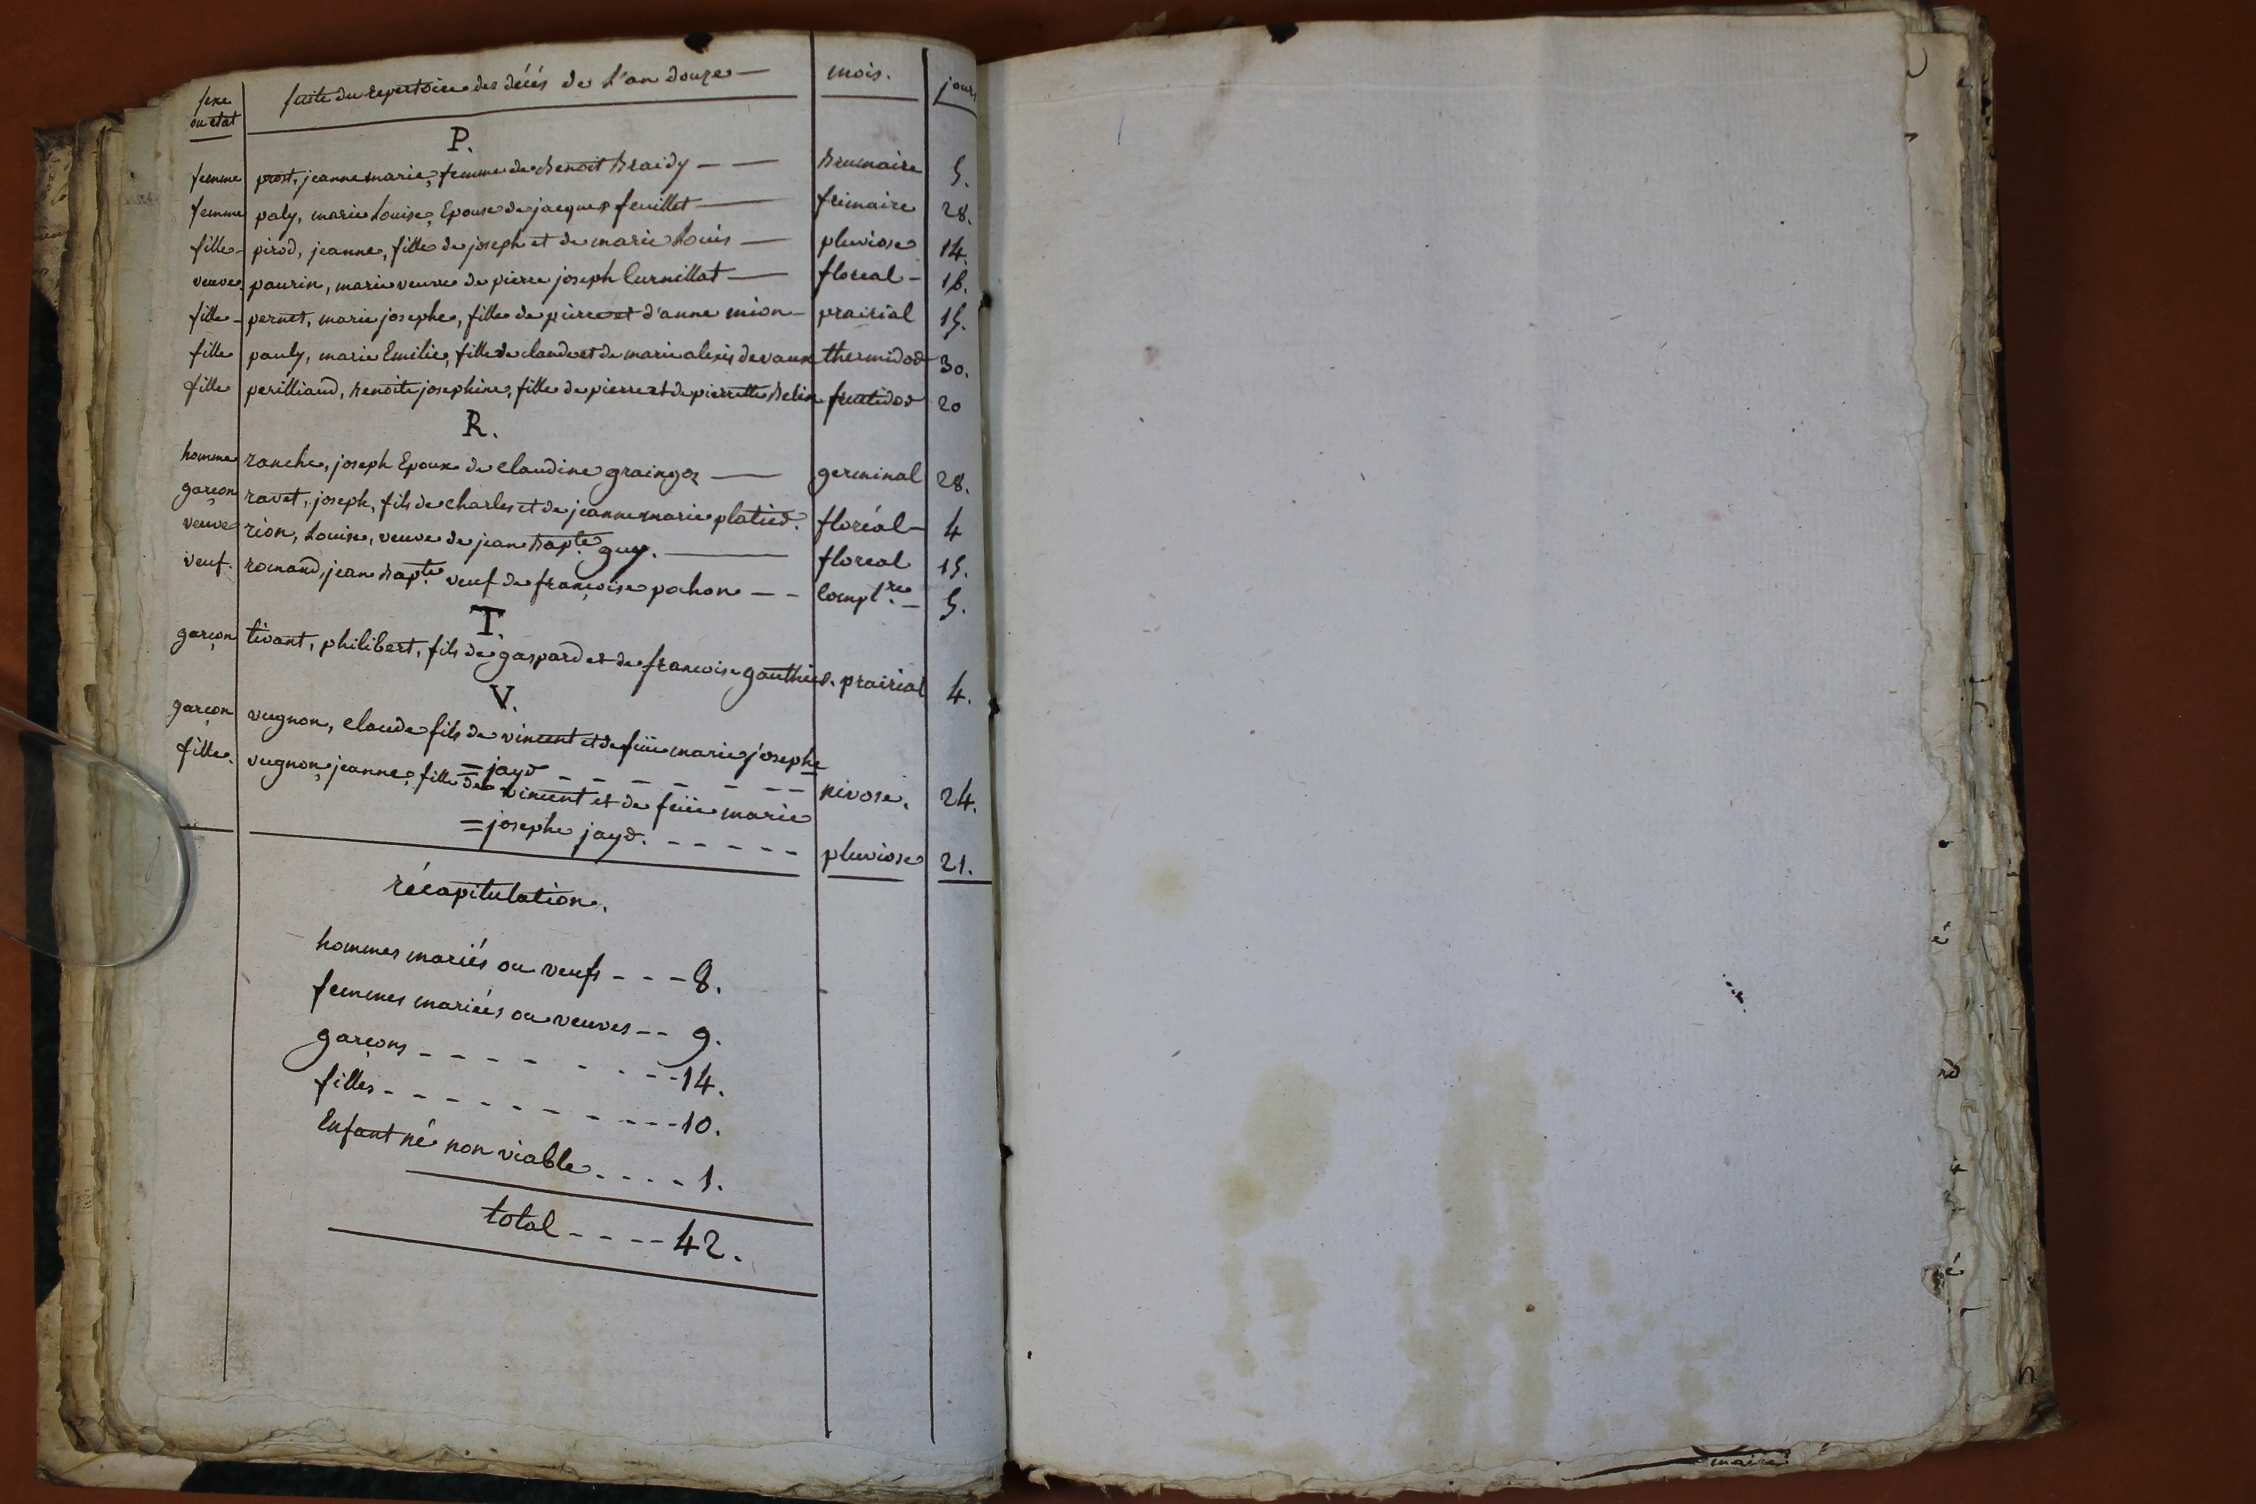 sexe ou etat | suite du repertoire des décés de l'an douze — | mois. | jours
P.
femme | prost, jeanne marie, femme de Benoit Braidy — — | Brumaire | 5.
femme | paly, marie Louise, Epouse de jacques feuillet — | frimaire | 28.
fille - | pirod, jeanne, fille de joseph et de marie Louis — | pluviose | 14.
veuve. | paurin, marie veuve de pierre joseph Curnillat — | floreal - | 18.
fille - | pernet, marie josephe, fille de pierre et d'anne mion - | prairial | 15.
fille | pauly, marie Emilie, fille de claude et de marie alexis devaux | thermidor | 30.
fille | perilliand, Benoite josephine, fille de pierre et de pierrette Belin | fructidor | 20
R.
homme | ranche, joseph Epoux de Claudine graingoz — | germinal | 28.
garçon | ravet, joseph, fils de charles et de jeanne marie platier. | floréal - | 4
veuve | rion, Louise, veuve de jean Bapte guy. — | floreal | 15.
veuf. | romand, jean Bapte veuf de françoise pochon — - | Complre - | 5.
T.
garçon | tivant, philibert, fils de gaspard et de francoise gauthier. | prairial | 4.
V.
garçon | vugnon, claude fils de vincent et de feüe marie josephe
= jayd - - - - - - - | nivose. | 24.
fille. | vugnon, jeanne, fille de vincent et de feüe marie
= josephe jayd. - - - - - | pluviose | 21.
récapitulation.
hommes mariés ou veufs - - - 8.
femmes mariées ou veuves - - 9.
garçons - - - - - - - - 14.
filles - - - - - - - - - 10.
Enfant né non viable - - - - 1.
total - - - - 42.